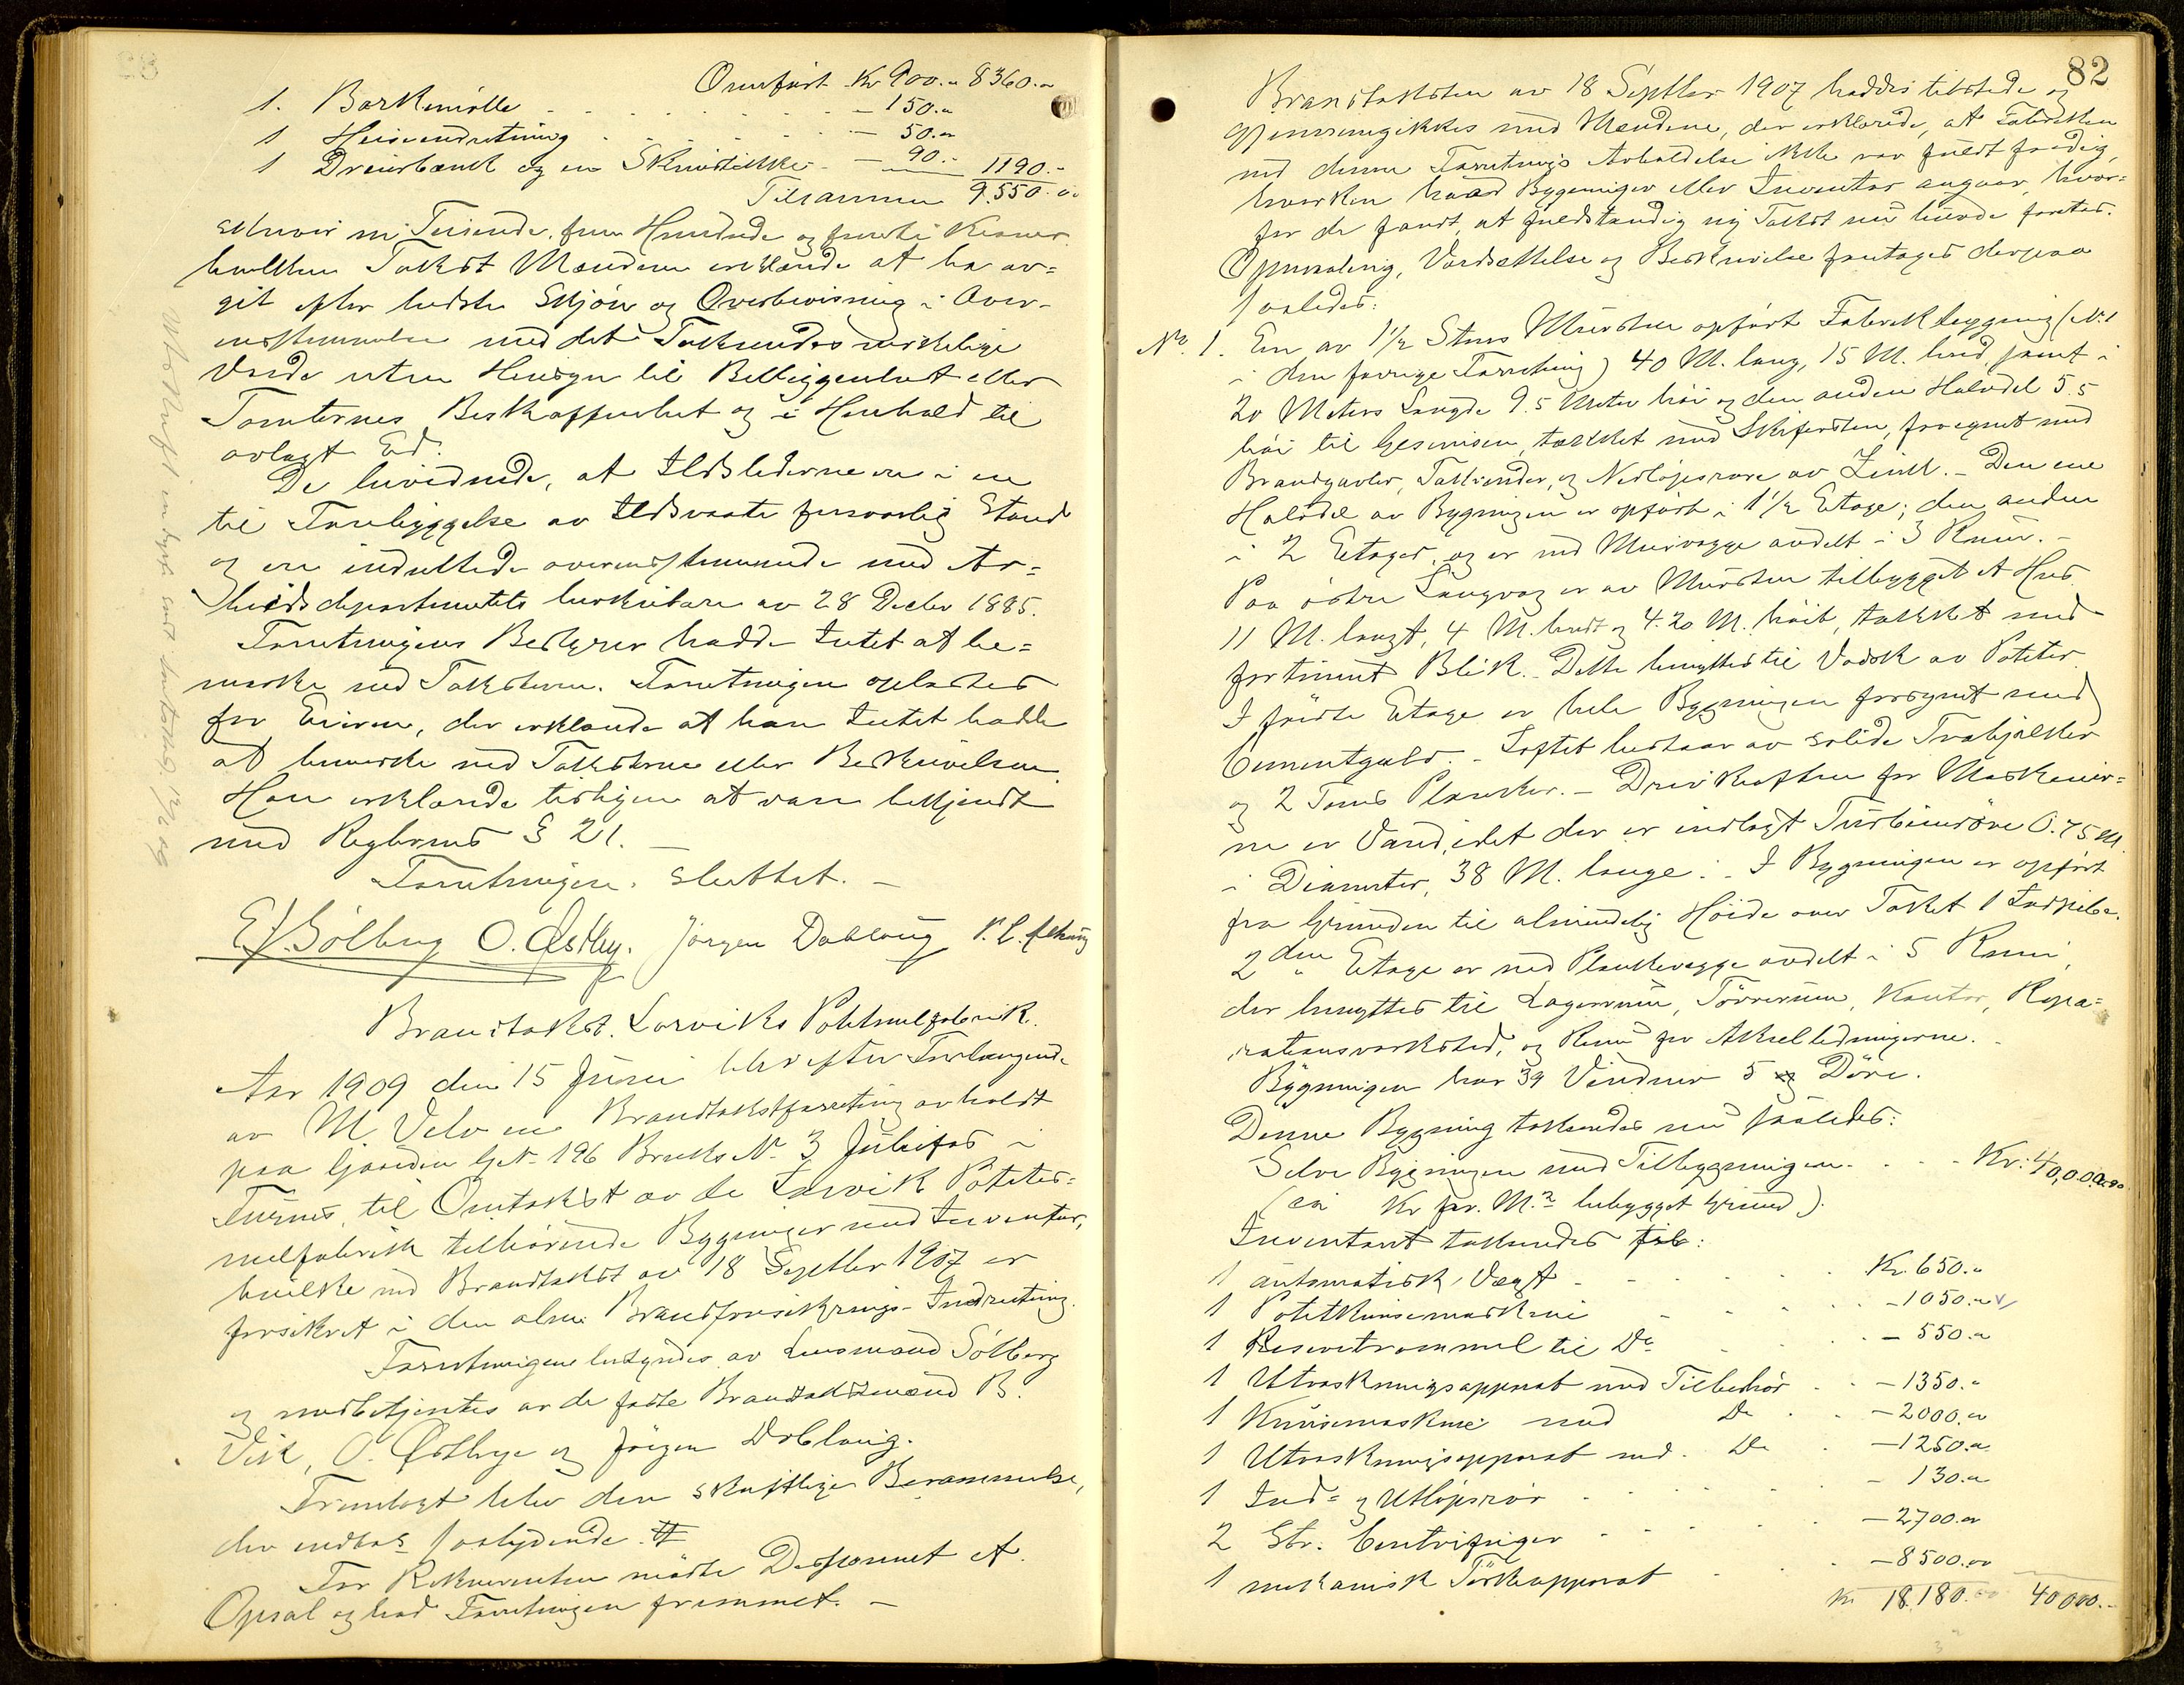 Overført Kr 900.- 8360.-
1. Barkemølle - 150.-
1 Heiseindretning - 50.-
1 Dreierbænk og en Skruestikke - 90.- 1190.-
Tilsammen 9.550.00
skriver ni Tusende, fem Hundrede og femti Kroner
hvilken Takst Mændene erklærede at ha av=
git efter bedste Skjøn og Overbevisning i Over-
ensstemmelse med det Takseredes virkelige
Værdi uten Hensyn til Beliggenhet eller
Tomternes Beskaffenhet og i Henhold til
avlagt Ed.
De bevidnede, at Ildstederne er i en
til Forebyggelse av Ildsvaade forsvarlig Stand
og er indrettede overensstemmende med Ar=
beidsdepartementets cirkulære av 28 Decbr 1885.
Forretningens Bestyrer hadde Intet at be=
merke ved Taksterne. Forretningen oplæstes
for Eieren, der erklærede at han Intet hadde
at bemerke ved Taksterne eller Beskrivelsen.
Han erklærede tillige at være bekjendt
med Reglernes § 21.
Forretningen sluttet. -
E. Sølberg O. Østbye. Jörgen Dabloug
Brandtakst. Lørviks Potetmelfabrik.
Aar 1909 den 15 Juni blev efter Forlangende
av M. Velo en Brandtakstforretning avholdt
paa Gaarden G.N. 196 Bruks N. 3
Furnes, til Omtakst av de Lørvik Potetes=
melfabrik tilhørende Bygninger med Inventar,
hvilke ved Brandtakst av 18 Septbr 1907 er
forsikret i den alm. Brandforsikrings-Indretning.
Forretningen bestyredes av Lensmand Sölberg
og medbetjentes av de faste Brandtakstmænd B.
Vik, O. Østbye og Jörgen Dabloug.
Fremlagt blev den skriftlige Berammelse,
der indtas saalydende #
For Rekvirenten mødte Disponent A.
Opsal og bad Forretningen fremmet. -
82
Brandtaksten av 18 Septbr 1907 haddes tilstede og
gjennemgikkes med Mændene, der erklærede, at Fabrikken
ved denne Forretnings Avholdelse ikke var fuldt færdig,
hverken hvad Bygninger eller Inventar angaar, hvor=
for de fandt, at fuldstændig ny Takst nu burde foretas.
Opmaaling, Værdsættelse og Beskrivelse foretoges derpaa
saaledes:
No. 1. En av 1½ Stens Mursten opført Fabrikbygning (N. 1
i den forrige Forretning) 40 M. lang, 15 M. bred, samt i
20 Meters Længde 9.5 Meter høi og den anden Halvdel 5.5
høi til Gesimsen, tækket med Skifersten, forsynet med
Brandgavler, Takrender, og Nedløpsrøre av Zink. - Den ene
Halvdel av Bygningen er opført i 1½ Etage; den anden
i 2 Etager, og er ved Murvægge avdelt i 3 Rum. -
Paa østre Langvæg er av Mursten tilbygget et Hus
11 M. langt, 4 M. bredt og 4.20 M. høit, tækket med
fortinnet Blik. - Dette benyttes til Vadsk av Poteter.
I første Etage er hele Bygningen forsynet med
Cementgulv. - Loftet bestaar av solide Træbjælker
og 2 Toms Planker. - Drivkraften for Maskiner=
ne er Vand, idet der er indlagt Turbinrøre 0.75 M.
i Diameter, 38 M. lange. - I Bygningen er opført
fra Grunden til almindelig Høide over Taket 1 Ildpibe.
2den Etage er ved Plankevægge avdelt i 5 Rum,
der benyttes til Lagerrum, Tørrerum, Kontor, Repa=
rationsverksted, og Rum for Akselledningerne.
Bygningen har 39 Vinduer 5 Døre.
Denne Bygning takseredes nu saaledes:
Selve Bygningen med Tilbygningen - Kr: 40,000.00
(ca Kr pr. M.2 bebygget Grund).
Inventaret takseredes til:
1 automatisk Vægt - Kr. 650.-
1 Potetknusemaskine - 1050.-
1 Reservetrommel til Do - 550.-
1 Utvaskningsapparat med Tilbehør - 1350.-
1 Knusemaskine med Do - 2000.-
1 Utvaskningsapparat med Do - 1250.-
1 Ind= og Utløpsrør - 130.-
2 Str. Centrifuger - 2700.-
1 mekanisk Tørkeapparat - 8500.00
Kr 18.180.00 40000.-